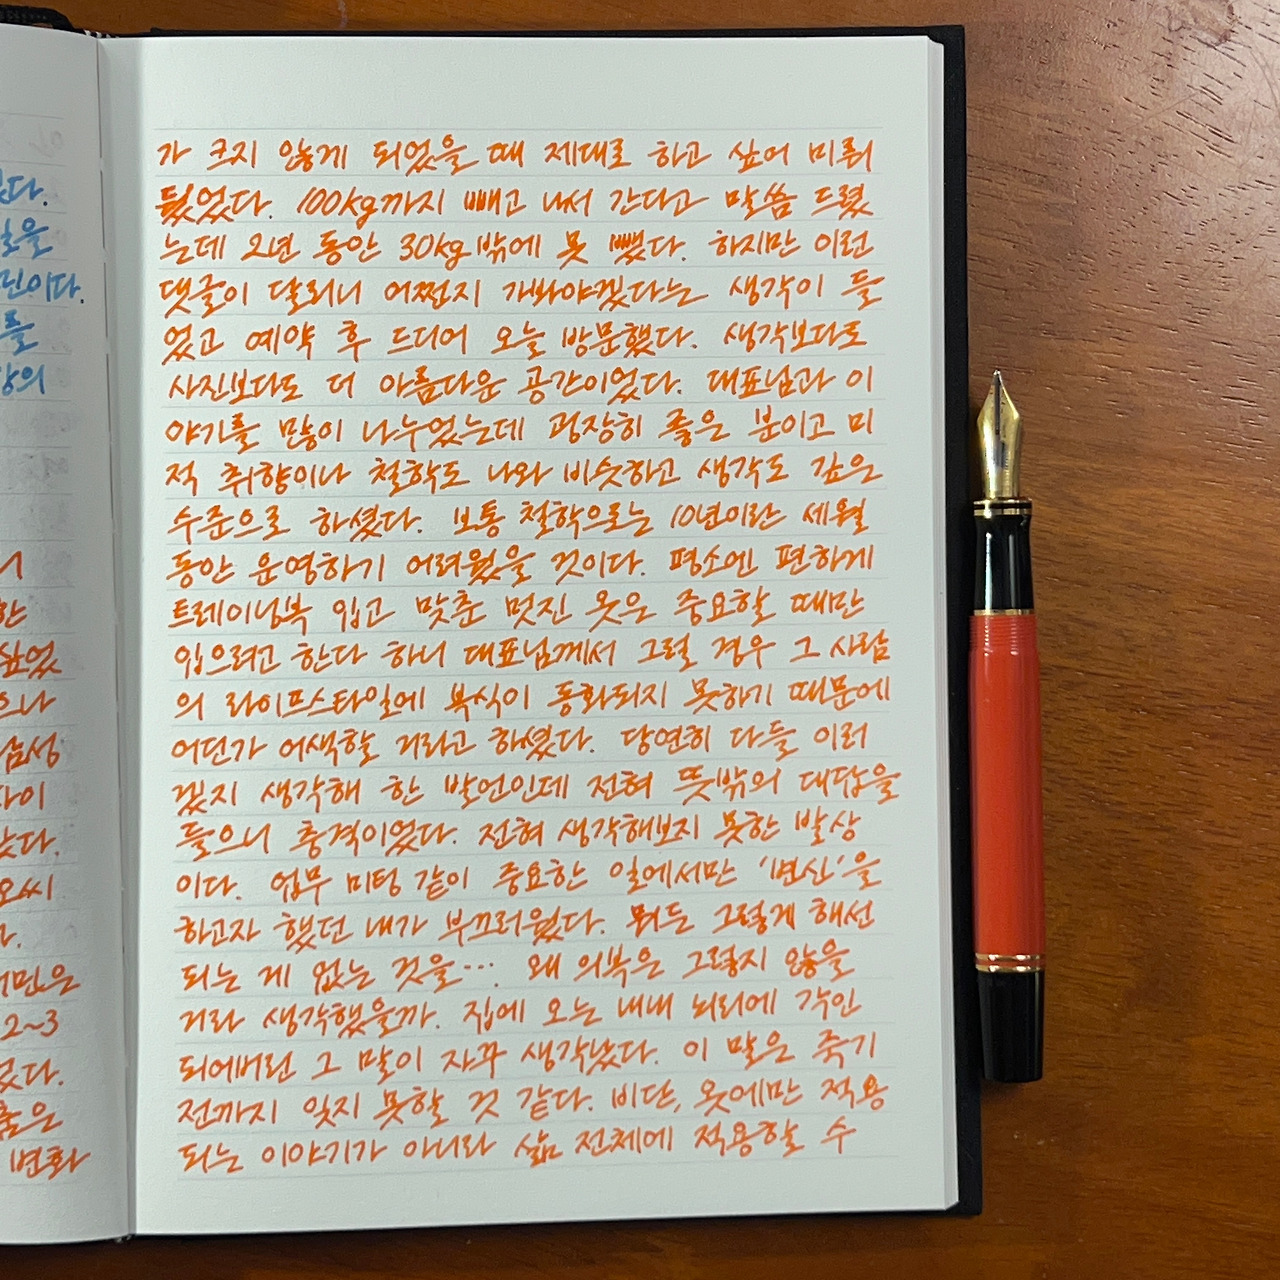 었다.
을
린이다.
를
상의
니
한
싶었
으나
감성
사이
았다.
오씨
다.
서민은
2~3
었다.
품은
변화
가 크지 않게 되었을 때 제대로 하고 싶어 미뤄
뒀었다. 100kg까지 빼고 나서 간다고 말씀 드렸
는데 2년 동안 30kg밖에 못 뺐다. 하지만 이런
댓글이 달리니 어쩐지 가봐야겠다는 생각이 들
었고 예약 후 드디어 오늘 방문했다. 생각보다도
사진보다도 더 아름다운 공간이었다. 대표님과 이
야기를 많이 나누었는데 굉장히 좋은 분이고 미
적 취향이나 철학도 나와 비슷하고 생각도 깊은
수준으로 하셨다. 보통 철학으로는 10년이란 세월
동안 운영하기 어려웠을 것이다. 평소엔 편하게
트레이닝복 입고 맞춘 멋진 옷은 중요할 때만
입으려고 한다 하니 대표님께서 그럴 경우 그 사람
의 라이프스타일에 복식이 동화되지 못하기 때문에
어딘가 어색할 거라고 하셨다. 당연히 다들 이러
겠지 생각해 한 발언인데 전혀 뜻밖의 대답을
들으니 충격이었다. 전혀 생각해보지 못한 발상
이다. 업무 미팅 같이 중요한 일에서만 '변신'을
하고자 했던 내가 부끄러웠다. 뭐든 그렇게 해선
되는 게 없는 것을… 왜 의복은 그렇지 않을
거라 생각했을까. 집에 오는 내내 뇌리에 각인
되어버린 그 말이 자꾸 생각났다. 이 말은 죽기
전까지 잊지 못할 것 같다. 비단, 옷에만 적용
되는 이야기가 아니라 삶 전체에 적용할 수